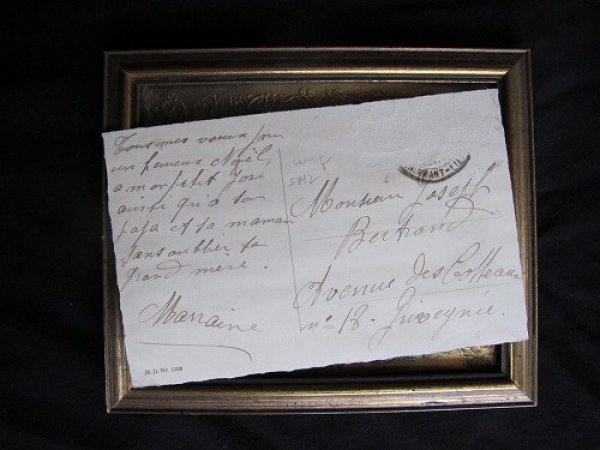 Tous mes voeux pour
un heureux Noël,
a mon petit José
ainsi qu'a ton
papa et ta maman
sans oublier ta
grand mère.
Marraine
M. D. Nr. 1108
5M2
Monsieur Joseph
Bertrand
Avenue des Cotteaux
n° 18. Griveynée